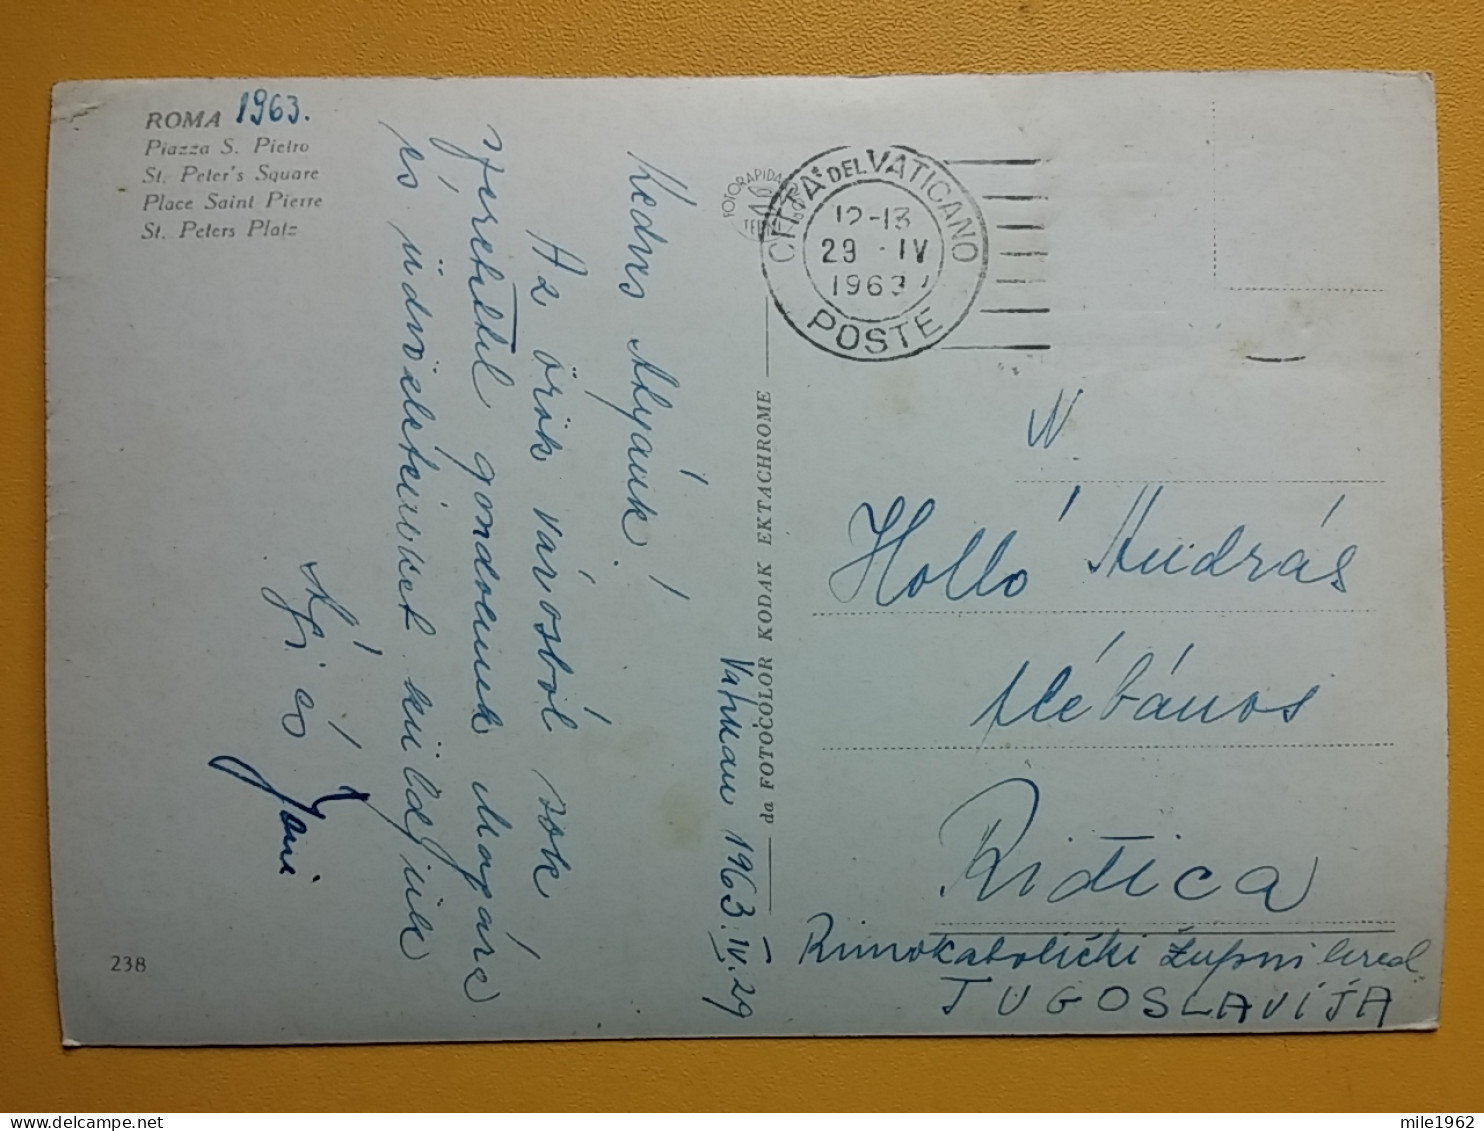 ROMA 1963.
Piazza S. Pietro
St. Peter's Square
Place Saint Pierre
St. Peters Platz
Vatikan 1963. IV. 29
Kedves Atyánk!
Az örök városból sok
szeretettel gondolunk Magára
és üdvözletünket küldjük
és Jani
238
FOTORAPIDA
TERNI
da FOTOCOLOR KODAK EKTACHROME
CITTÀ DEL VATICANO
12-13
29 · IV
1963
POSTE
N
Holló András
plébános
Riđica
Rimokatolički Župni Ured.
JUGOSLAVIJA
mile1962